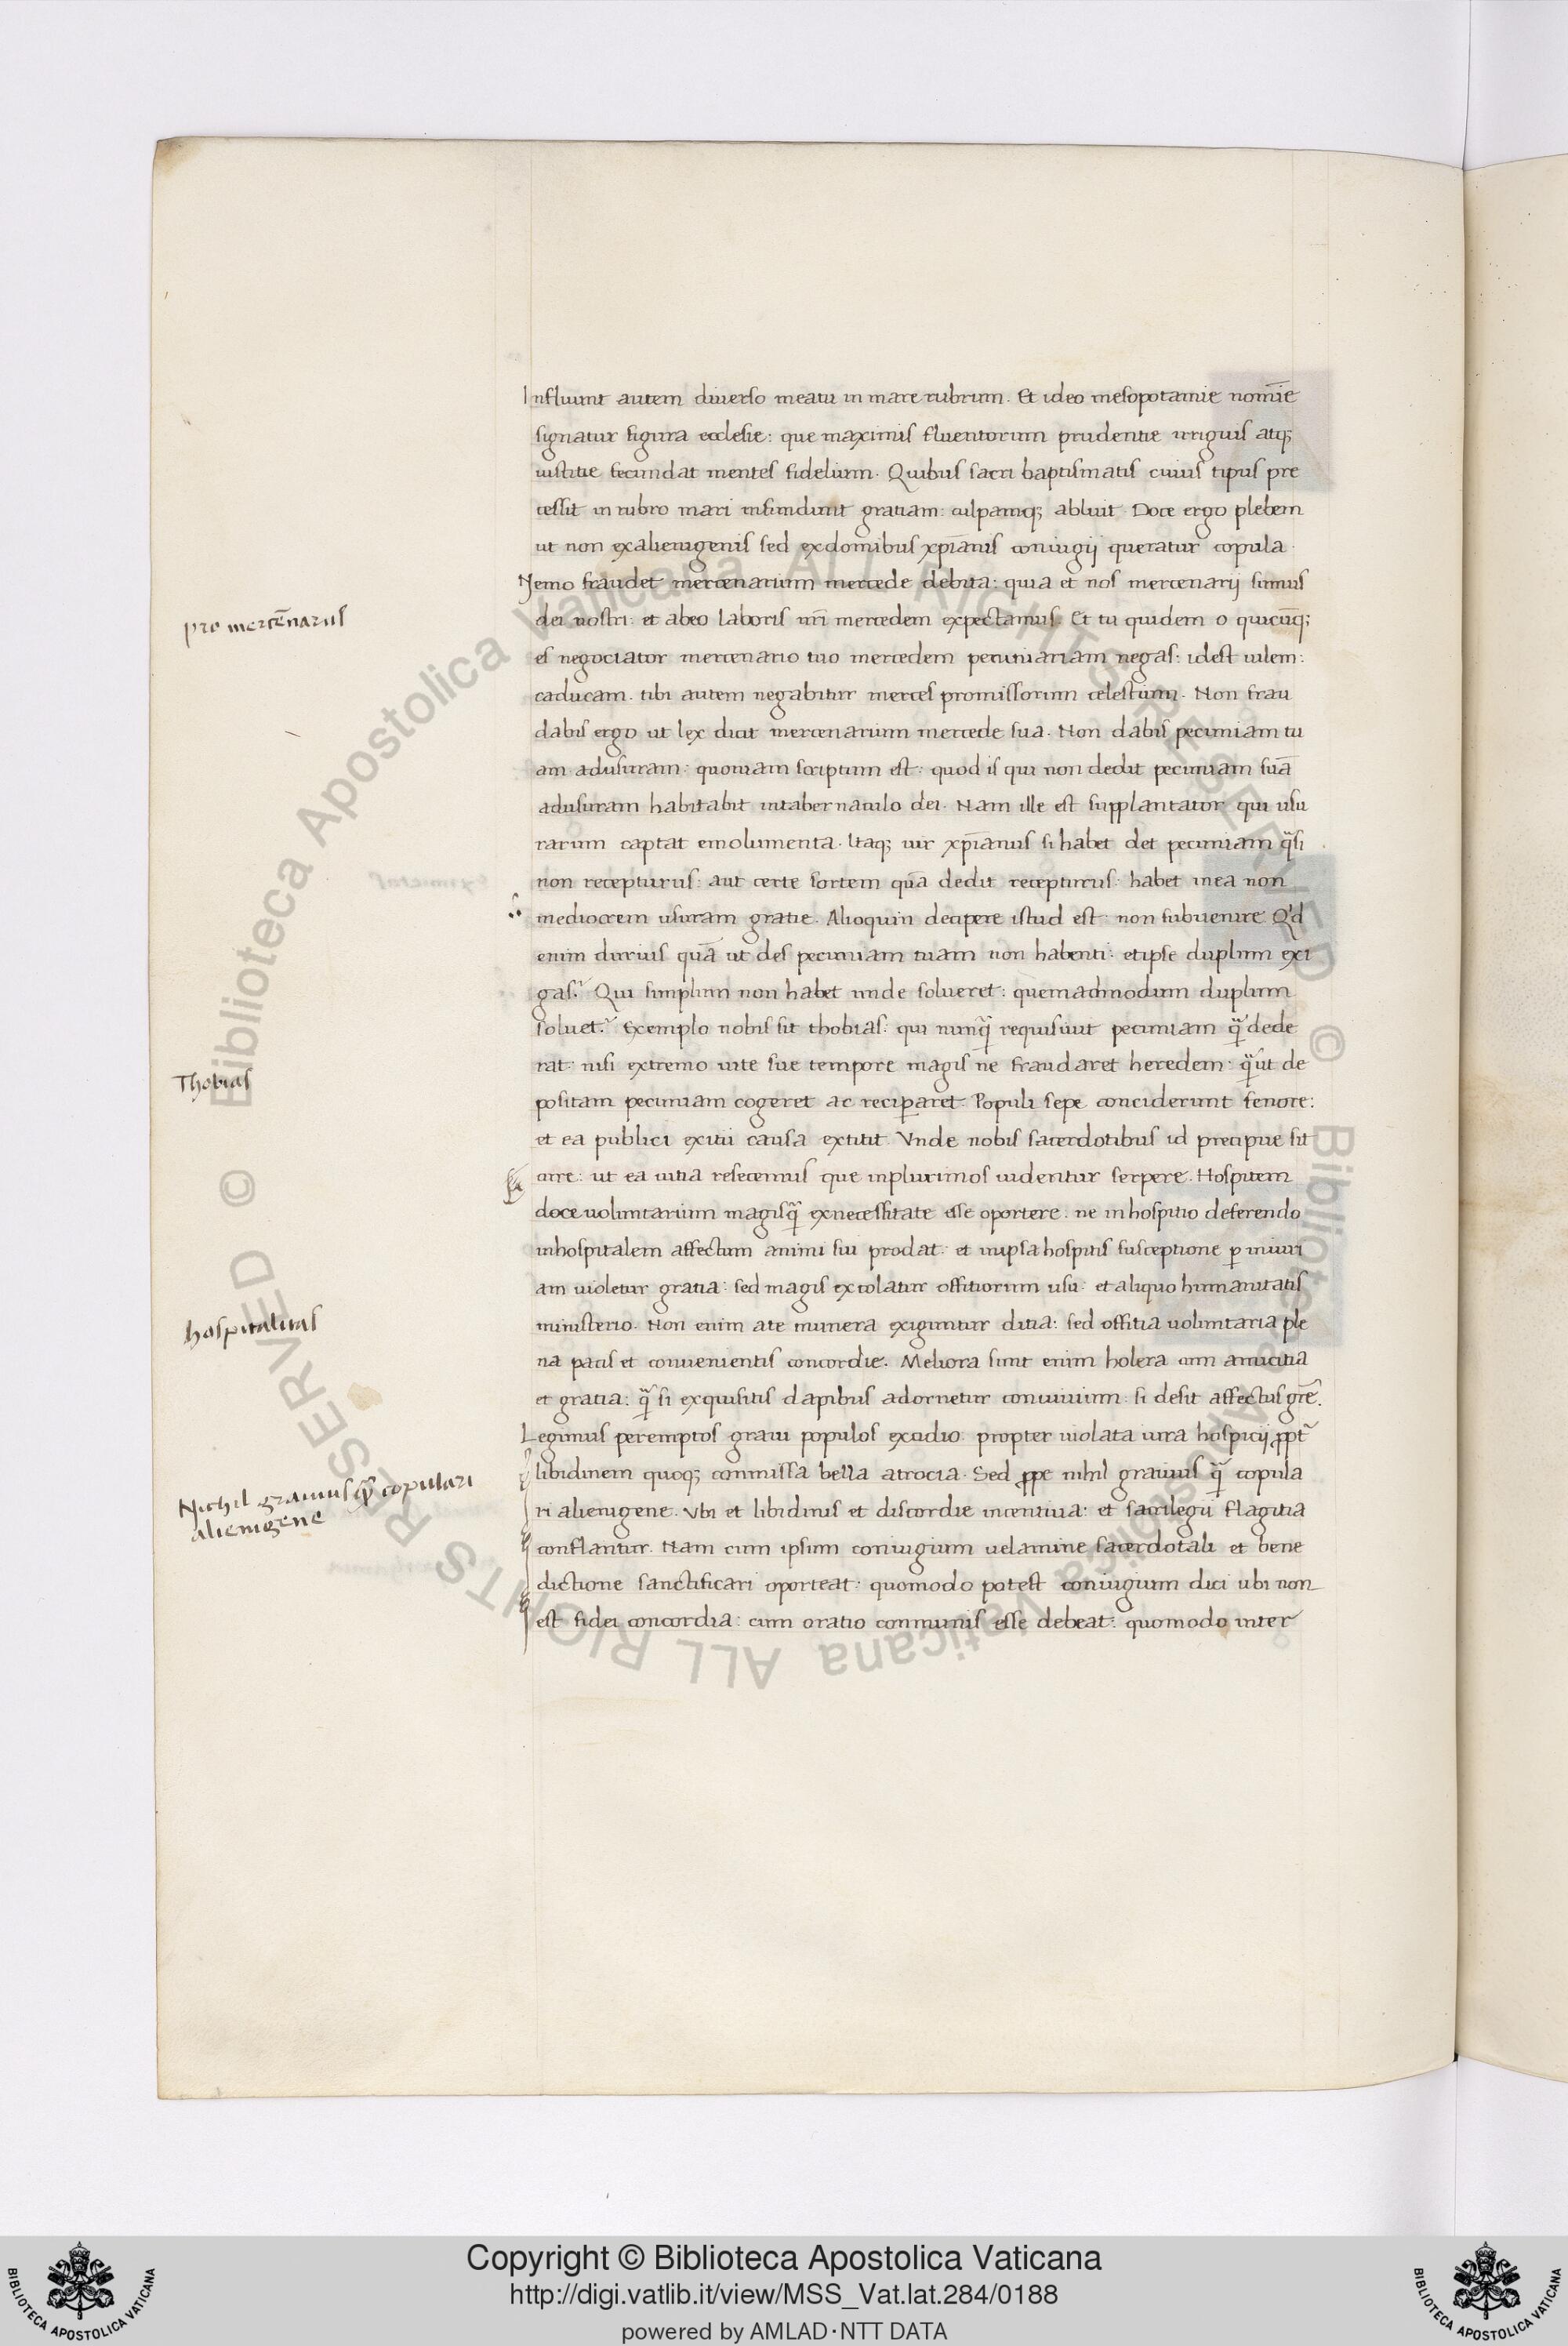 Influunt autem diuerso meatu in mare rubrum. Et ideo mesopotamie nomīe
signatur figura ecclesie: que maximis fluentorum prudentie irriguis atq;
iustitie fecundat mentes fidelium. Quibus sacri baptismatis cuius tipus pre
cessit in rubro mari infundunt gratiam: culpamq; abluit. Doce ergo plebem
ut non exalienigenis sed exdomibus xp̄ianis coniugij queratur copula.
Nemo fraudet mercenarium mercede debita: quia et nos mercenarij sumus
dei nostri: et abeo laboris nr̄i mercedem expectamus. Et tu quidem o quicūq;
es negociator mercenario tuo mercedem pecuniariam negas: idest uilem:
caducam. tibi autem negabitur merces promissorum celestium. Non frau
dabis ergo ut lex dicit mercenarium mercede sua. Non dabis pecuniam tu
am adusuram: quoniam scriptum est: quod is qui non dedit pecuniam suā
adusuram habitabit intabernaculo dei. Nam ille est supplantator qui usu
rarum captat emolumenta. Itaq; uir xp̄ianus si habet det pecuniam q̈si
non recepturus: aut certe sortem quā dedit recepturus: habet inea non
mediocrem usuram gratie. Alioquin decipere istud est: non subuenire. Qd
enim durius quā ut des pecuniam tuam non habenti: etipse duplum exi
gas? Qui simplum non habet unde solueret: quemadmodum duplum
soluet? Exemplo nobis sit thobias: qui nunq̄ requisiuit pecuniam q̄ dede
rat: nisi extremo uite sue tempore magis ne fraudaret heredem: q̄ ut de
positam pecuniam cogeret ac reciꝑaret. Populi sepe conciderunt fenore:
et ea publici exitii causa extitit. Vnde nobis sacerdotibus id precipue sit
cure: ut ea uitia resecemus que inplurimos uidentur serpere. Hospitem
doce uoluntarium magisq̄ exnecessitate esse oportere: ne inhospitio deferendo
inhospitalem affectum animi sui prodat: et inipsa hospitis susceptione ꝑ iniuri
am uioletur gratia: sed magis excolatur offitiorum usu: et aliquo humanitatis
ministerio. Non enim ate munera exiguntur ditia: sed offitia uoluntaria ple
na pacis et conuenientis concordie. Meliora sunt enim holera cum amicitia
et gratia: q̄ si exquisitis dapibus adornetur conuiuium: si desit affectus grē.
Legimus peremptos graui populos excidio propter uiolata iura hospicij ꝓpt̄
libidinem quoq; commissa bella atrocia. Sed ꝓpe nihil grauius q̄ copula
ri alienigene. Vbi et libidinis et discordie incentiua: et sacrilegii flagitia
conflantur. Nam cum ipsum coniugium uelamine sacerdotali et bene
dictione sanctificari oporteat: quomodo potest coniugium dici ubi non
est fidei concordia: cum oratio communis esse debeat: quomodo inter
pro mercēnariis
Thobias
hospitalitas
Nichil grauius q̄ copulari
alienigene
Biblioteca Apostolica Vaticana ALL RIGHTS RESERVED © Biblioteca Apostolica Vaticana ALL RIGHTS RESERVED ©
Copyright © Biblioteca Apostolica Vaticana
http://digi.vatlib.it/view/MSS_Vat.lat.284/0188
powered by AMLAD·NTT DATA
BIBLIOTECA APOSTOLICA VATICANA
BIBLIOTECA APOSTOLICA VATICANA